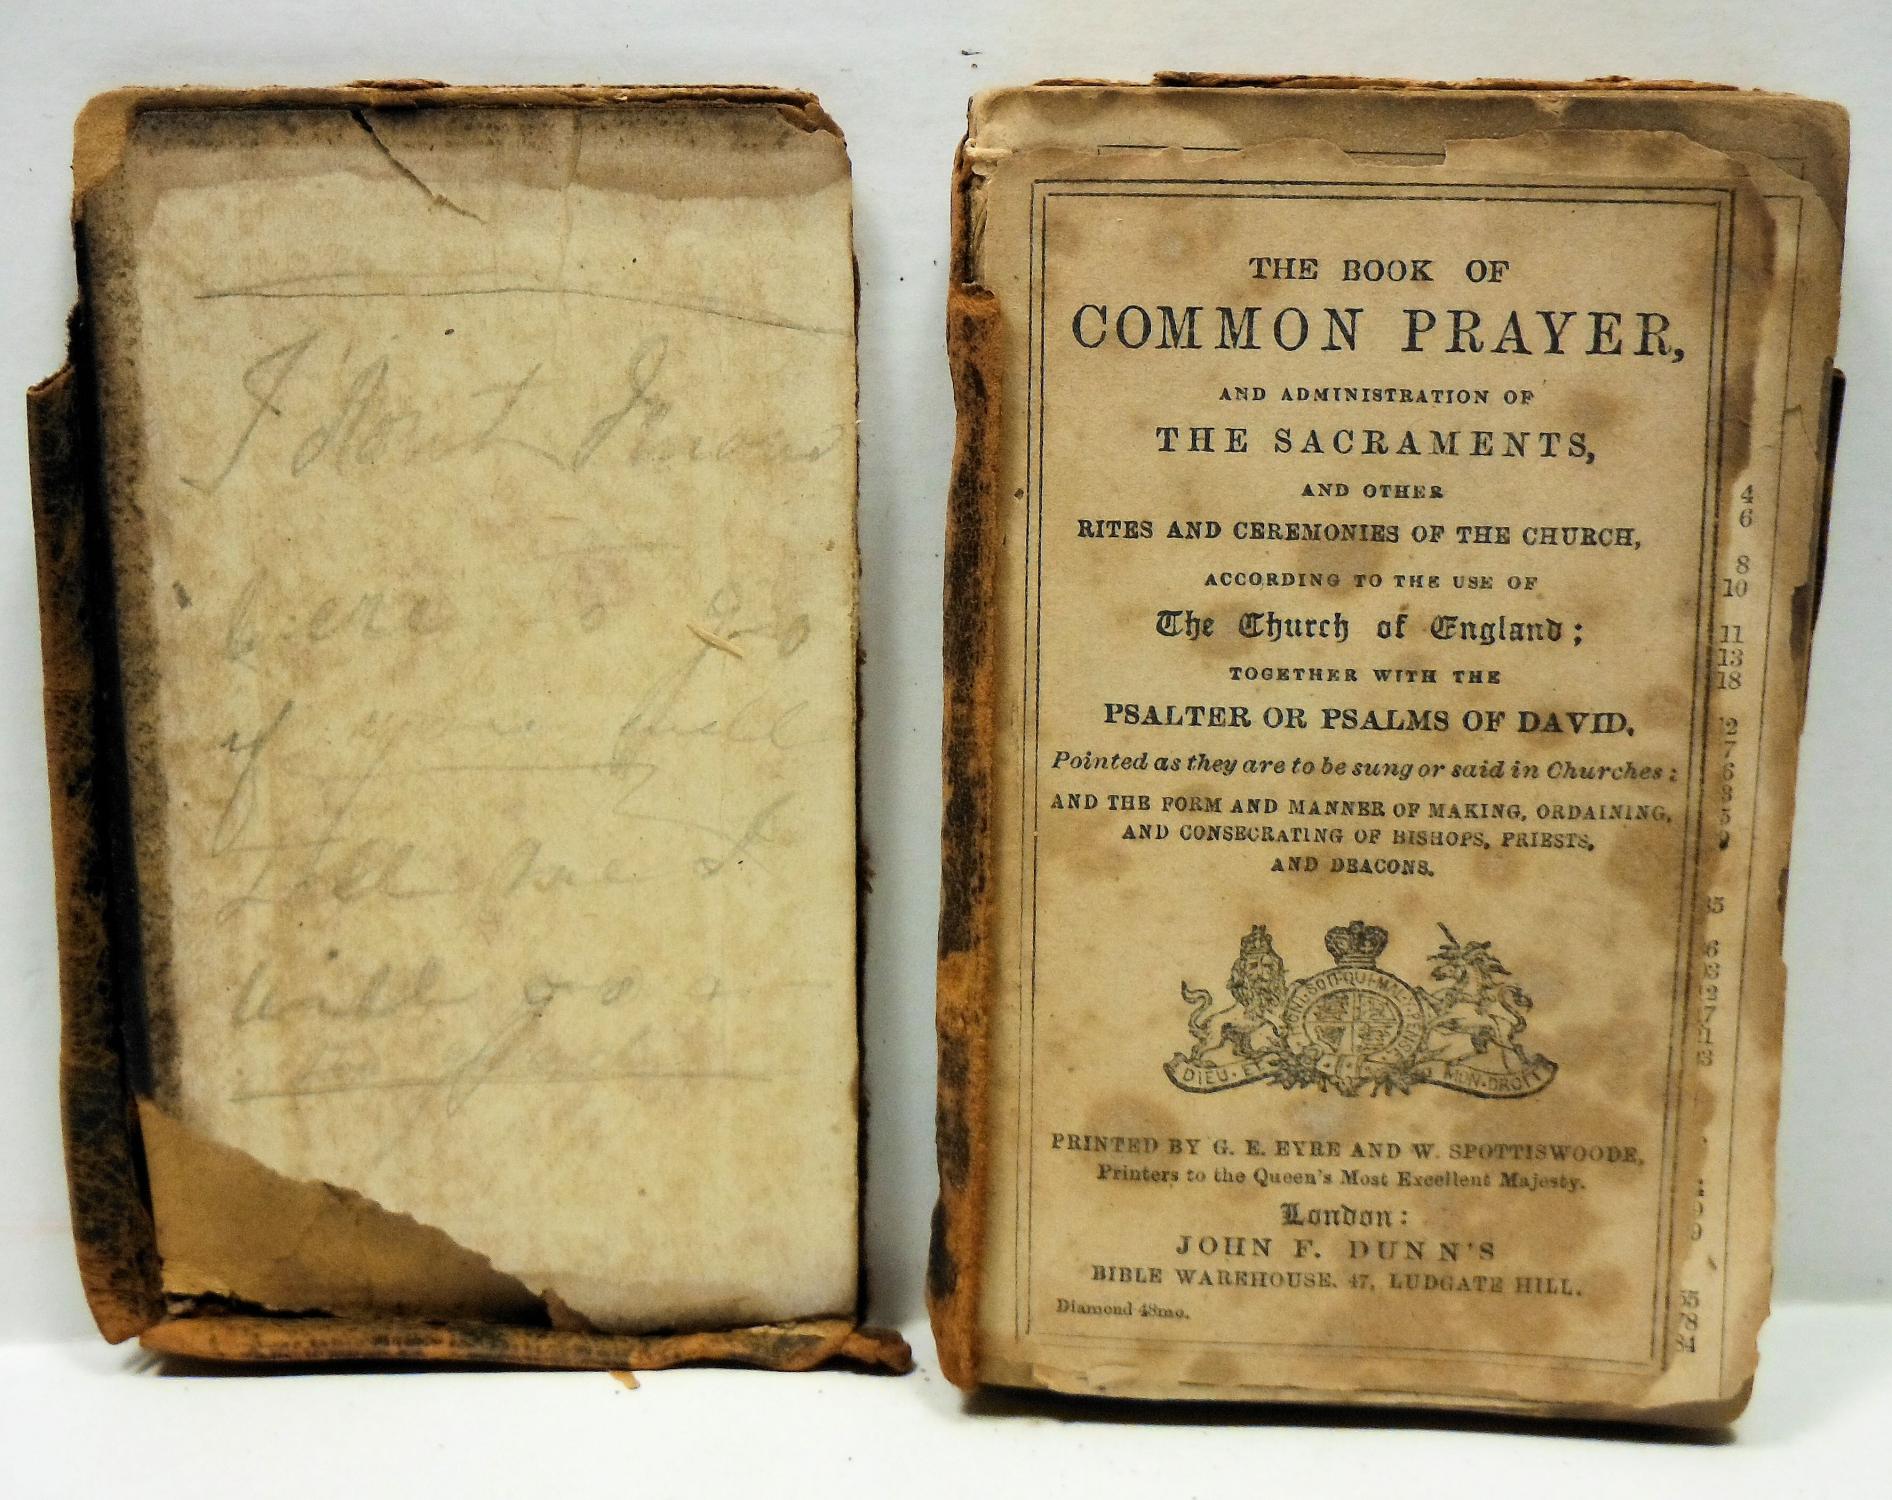 I don't know
here to go
if you will
tell me I
will go
THE BOOK OF
COMMON PRAYER,
AND ADMINISTRATION OF
THE SACRAMENTS,
AND OTHER
RITES AND CEREMONIES OF THE CHURCH,
ACCORDING TO THE USE OF
The Church of England;
TOGETHER WITH THE
PSALTER OR PSALMS OF DAVID,
Pointed as they are to be sung or said in Churches:
AND THE FORM AND MANNER OF MAKING, ORDAINING,
AND CONSECRATING OF BISHOPS, PRIESTS,
AND DEACONS.
HONI·SOIT·QUI·MAL·Y·PENSE
DIEU·ET MON·DROIT
PRINTED BY G. E. EYRE AND W. SPOTTISWOODE,
Printers to the Queen's Most Excellent Majesty.
London:
JOHN F. DUNN'S
BIBLE WAREHOUSE, 47, LUDGATE HILL.
Diamond 48mo.
4
6
8
10
11
13
18